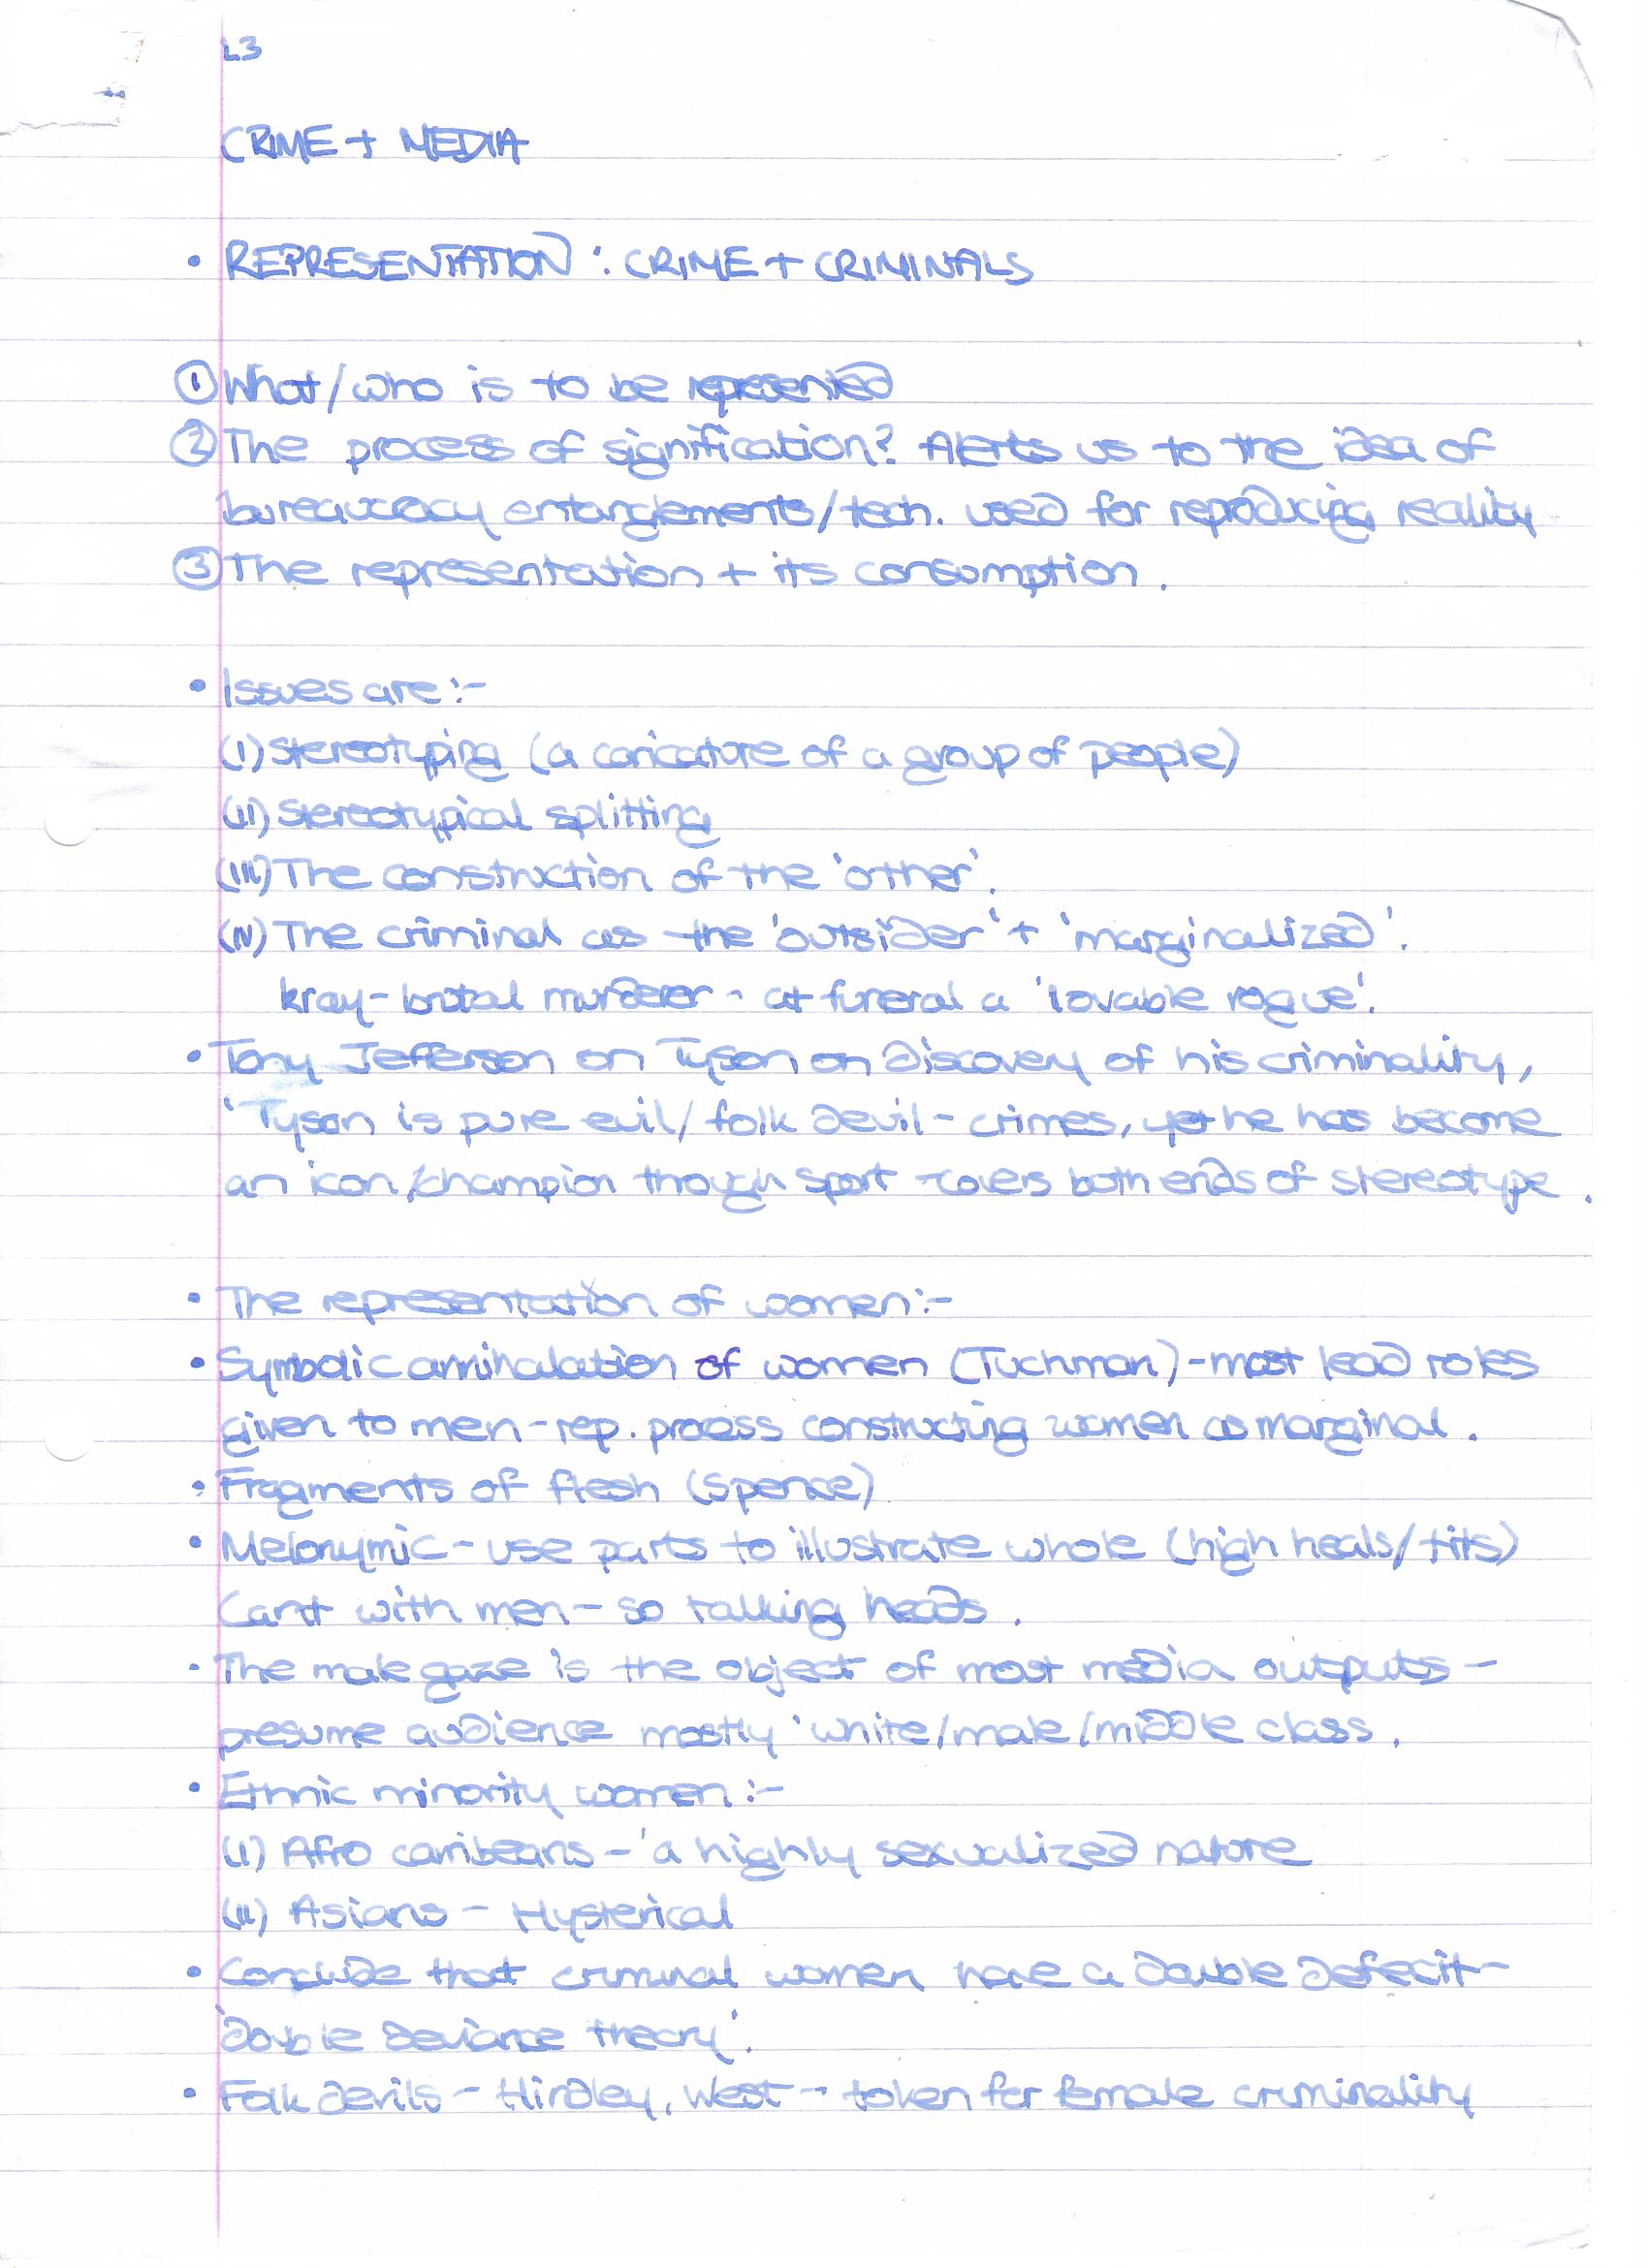 L3
CRIME + MEDIA
• REPRESENTATION : CRIME + CRIMINALS
① What/who is to be represented
② The process of signification? Alerts us to the idea of
bureaucracy entanglements/tech. used for reproducing reality
③ The representation + its consumption.
• Issues are:-
(I) Stereotyping (a caricature of a group of people)
(II) Stereotypical splitting
(III) The construction of the 'other'.
(IV) The criminal as the 'outsider' + 'marginalized'.
Kray - brutal murderer - at funeral a 'lovable rogue'.
• Tony Jefferson on Tyson on discovery of his criminality,
'Tyson is pure evil/folk devil - crimes, yet he has become
an icon/champion though sport - covers both ends of stereotype.
• The representation of women:-
• Symbolic annihalation of women (Tuchman) - most lead roles
given to men - rep. process constructing women as marginal.
• Fragments of flesh (Spence)
• Melonymic - use parts to illustrate whole (high heals/tits)
Can't with men - so talking heads.
• The male gaze is the object of most media outputs -
presume audience mostly 'white/male/middle class.
• Ethnic minority women:-
(I) Afro carribeans - 'a highly sexualized nature
(II) Asians - Hysterical
• Conclude that criminal women have a double defecit -
'double deviance theory'.
• Folk devils - Hindley, West - token for female criminality